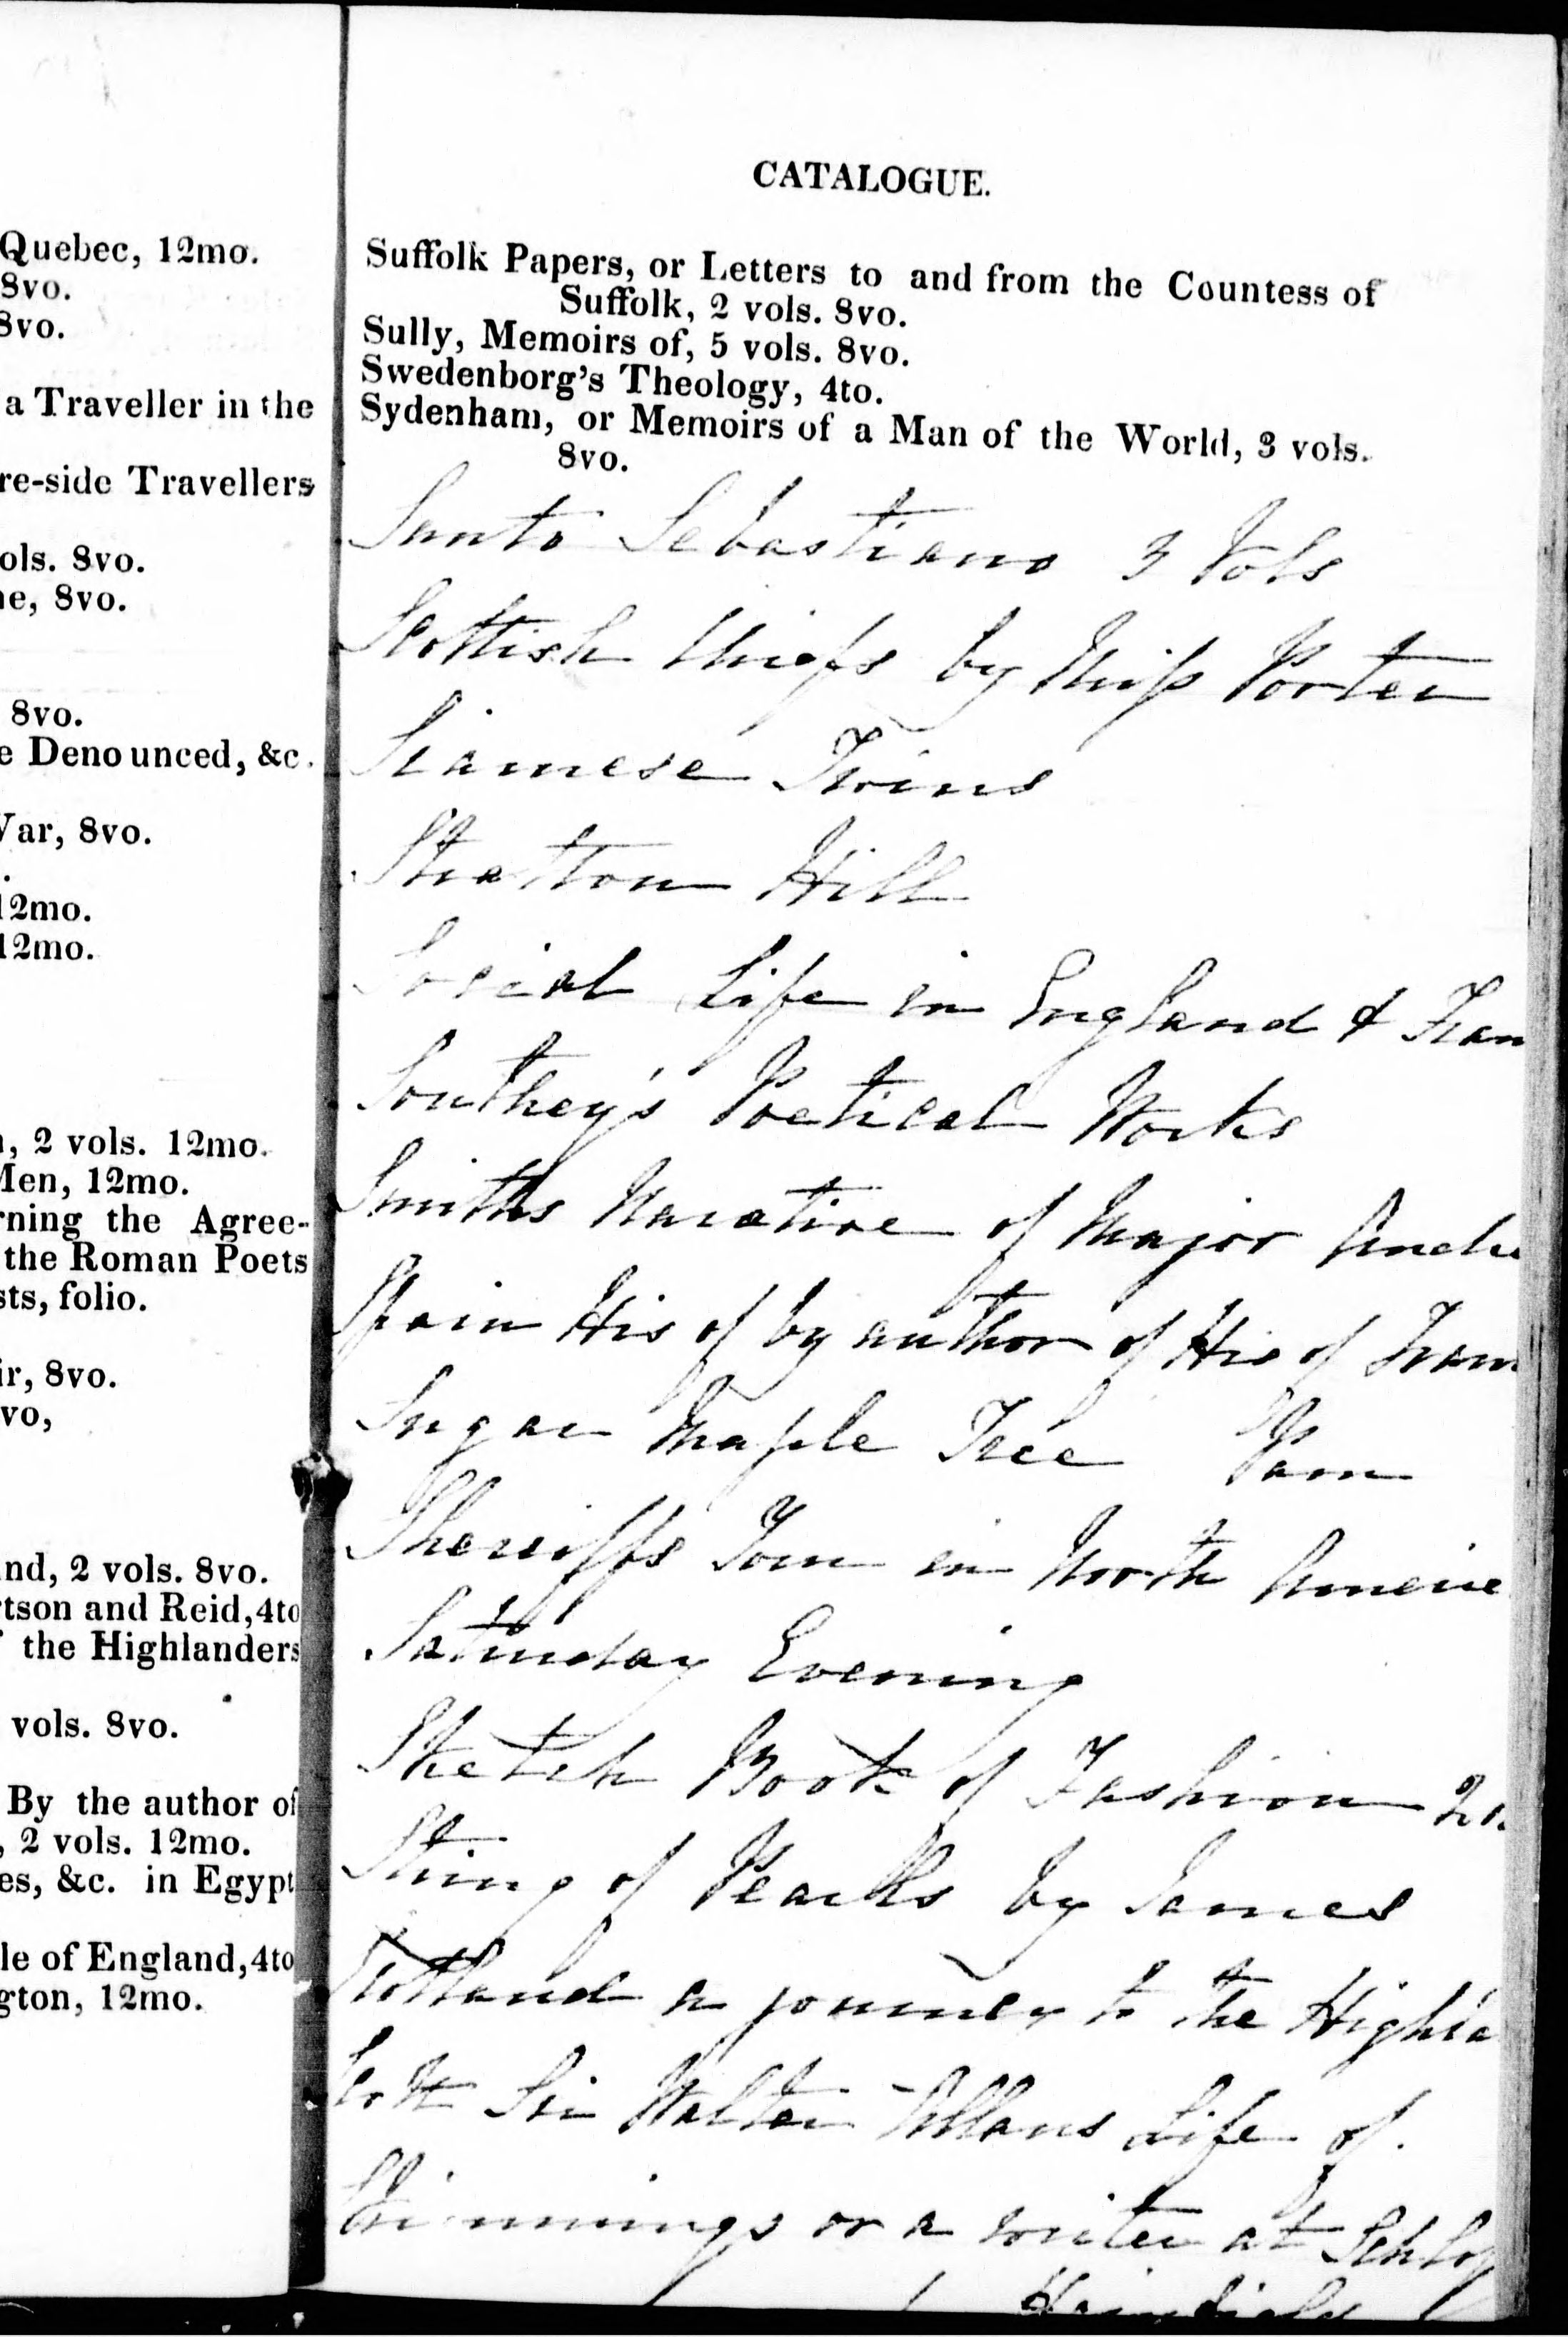 Quebec, 12mo.
8vo.
8vo.
a Traveller in the
re-side Travellers
ols. 8vo.
ne, 8vo.
8vo.
e Denounced, &c.
Var, 8vo.
12mo.
12mo.
n, 2 vols. 12mo.
Men, 12mo.
rning the Agree-
the Roman Poets
sts, folio.
ir, 8vo.
vo,
and, 2 vols. 8vo.
rtson and Reid, 4to
the Highlanders
vols. 8vo.
By the author of
, 2 vols. 12mo.
es, &c. in Egypt
le of England, 4to
gton, 12mo.
CATALOGUE.
Suffolk Papers, or Letters to and from the Countess of
Suffolk, 2 vols. 8vo.
Sully, Memoirs of, 5 vols. 8vo.
Swedenborg's Theology, 4to.
Sydenham, or Memoirs of a Man of the World, 3 vols.
8vo.
Santo Sebastiano 3 Vols
Scottish Chiefs by Miss Porter
Siamese Twins
Stratton Hill
Social Life in England & Fran
Southey's Poetical Works
Smiths Narative of Major Andre
Spain His of by author of His of Fran
Sugar Maple Tree Pam
Sherriffs Tour in North Americ
Saturday Evening
Sketch Book of Fashion 2 v
String of Pearls by James
Scotland a journey to the Highla
Scott Sir Walter Allans Life of
Skimmings or a winter at Schlo